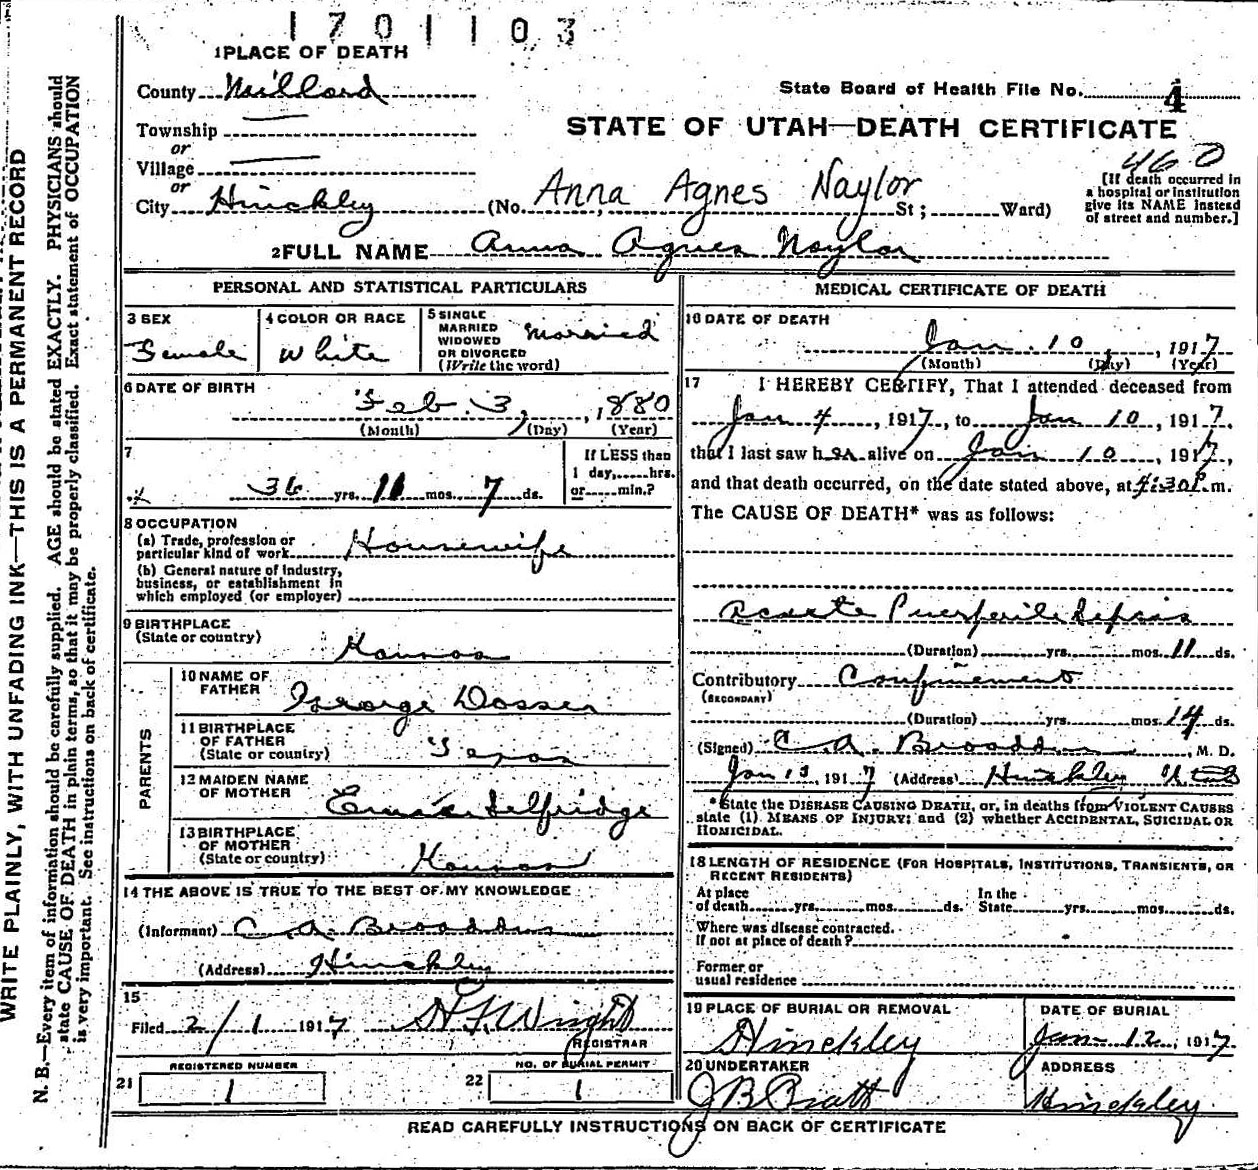 1701103
1 PLACE OF DEATH
County Millard
State Board of Health File No. 4
Township
or
STATE OF UTAH—DEATH CERTIFICATE
Village
or
460
[If death occurred in
a hospital or institution
give its NAME instead
of street and number.]
City Hinckley (No. Anna Agnes Naylor St; Ward)
2 FULL NAME Anna Agnes Naylor
PERSONAL AND STATISTICAL PARTICULARS
3 SEX Female
4 COLOR OR RACE White
5 SINGLE
MARRIED
WIDOWED
OR DIVORCED
(Write the word) Married
6 DATE OF BIRTH
Feb. 3, 1880
(Month) (Day) (Year)
7
36 yrs. 11 mos. 7 ds.
If LESS than
1 day, hrs.
or min.?
8 OCCUPATION
(a) Trade, profession or
particular kind of work Housewife
(b) General nature of industry,
business, or establishment in
which employed (or employer)
9 BIRTHPLACE
(State or country)
Kansas
PARENTS
10 NAME OF
FATHER George Dosser
11 BIRTHPLACE
OF FATHER
(State or country) Texas
12 MAIDEN NAME
OF MOTHER Selfridge
13 BIRTHPLACE
OF MOTHER
(State or country) Kansas
14 THE ABOVE IS TRUE TO THE BEST OF MY KNOWLEDGE
(Informant) C. A. Broaddus
(Address) Hinckley
15
Filed 2/1 1917 Wright
REGISTRAR
REGISTERED NUMBER
21 1
NO. OF BURIAL PERMIT
22 1
MEDICAL CERTIFICATE OF DEATH
16 DATE OF DEATH
Jan. 10, 1917
(Month) (Day) (Year)
17 I HEREBY CERTIFY, That I attended deceased from
Jan 4, 1917, to Jan 10, 1917,
that I last saw her alive on Jan 10, 1917,
and that death occurred, on the date stated above, at 4:30 P. m.
The CAUSE OF DEATH* was as follows:
Acute Puerperile Sepsis
(Duration) yrs. mos. 11 ds.
Contributory Confinement
(SECONDARY)
(Duration) yrs. mos. 14 ds.
(Signed) C. A. Broaddus, M. D.
Jan 13, 1917 (Address) Hinckley Utah
*State the DISEASE CAUSING DEATH, or, in deaths from VIOLENT CAUSES
state (1) MEANS OF INJURY; and (2) whether ACCIDENTAL, SUICIDAL OR
HOMICIDAL.
18 LENGTH OF RESIDENCE (FOR HOSPITALS, INSTITUTIONS, TRANSIENTS, OR
RECENT RESIDENTS)
At place
of death yrs. mos. ds.
In the
State yrs. mos. ds.
Where was disease contracted.
If not at place of death?
Former or
usual residence
19 PLACE OF BURIAL OR REMOVAL
Hinckley
DATE OF BURIAL
Jan 12, 1917.
20 UNDERTAKER
J B Pratt
ADDRESS
Hinckley
READ CAREFULLY INSTRUCTIONS ON BACK OF CERTIFICATE
WRITE PLAINLY, WITH UNFADING INK—THIS IS A PERMANENT RECORD
N. B.—Every item of information should be carefully supplied. AGE should be stated EXACTLY. PHYSICIANS should
state CAUSE OF DEATH in plain terms, so that it may be properly classified. Exact statement of OCCUPATION
is very important. See instructions on back of certificate.